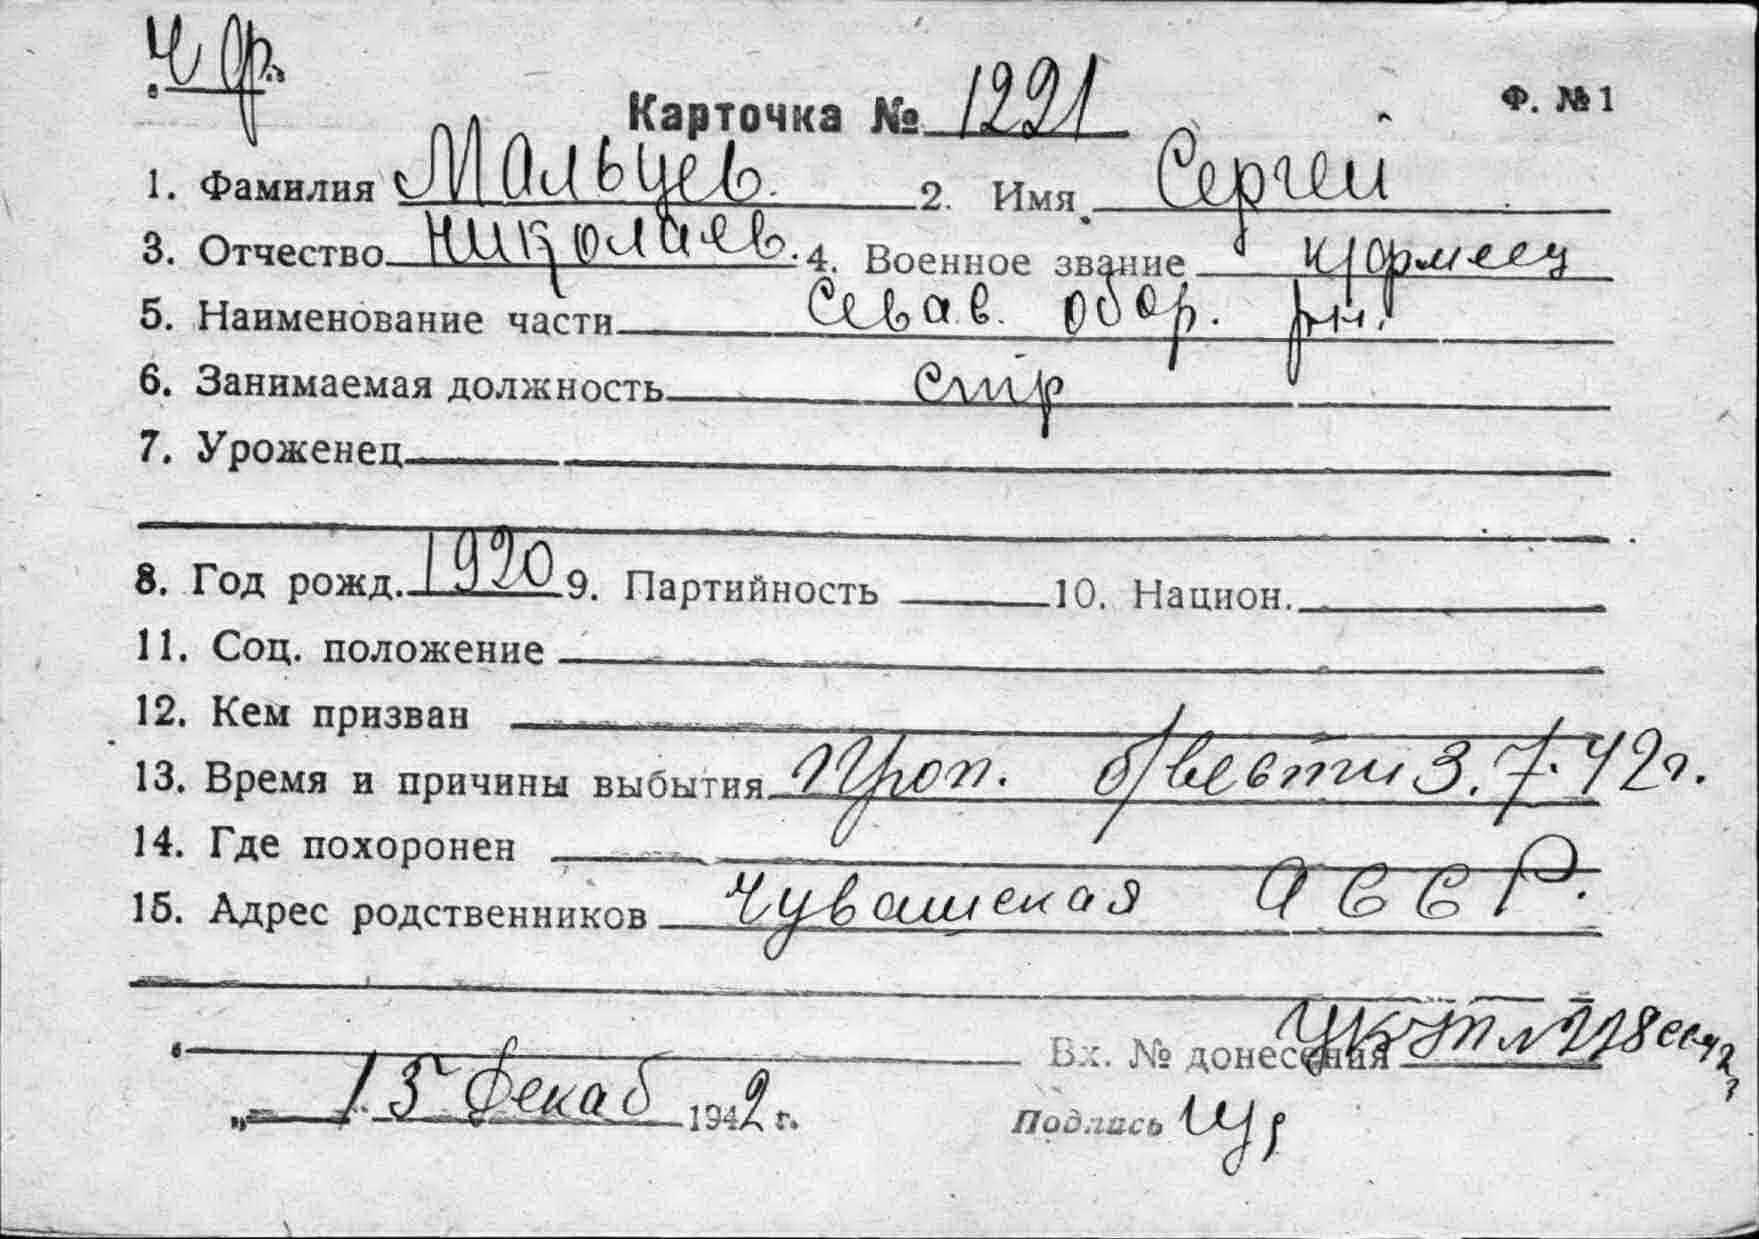 Ч ф.
Карточка № 1221 Ф. № 1
1. Фамилия Мальцев. 2. Имя Сергей
3. Отчество Николаев. 4. Военное звание к/армеец
5. Наименование части Сев. обор. р-н.
6. Занимаемая должность стр
7. Уроженец
8. Год рожд. 1920 9. Партийность 10. Национ.
11. Соц. положение
12. Кем призван
13. Время и причины выбытия Проп. б/вести 3.7.42 г.
14. Где похоронен
15. Адрес родственников Чувашская АССР.
Вх. № донесения
„ 15 декаб 1942 г. Подпись